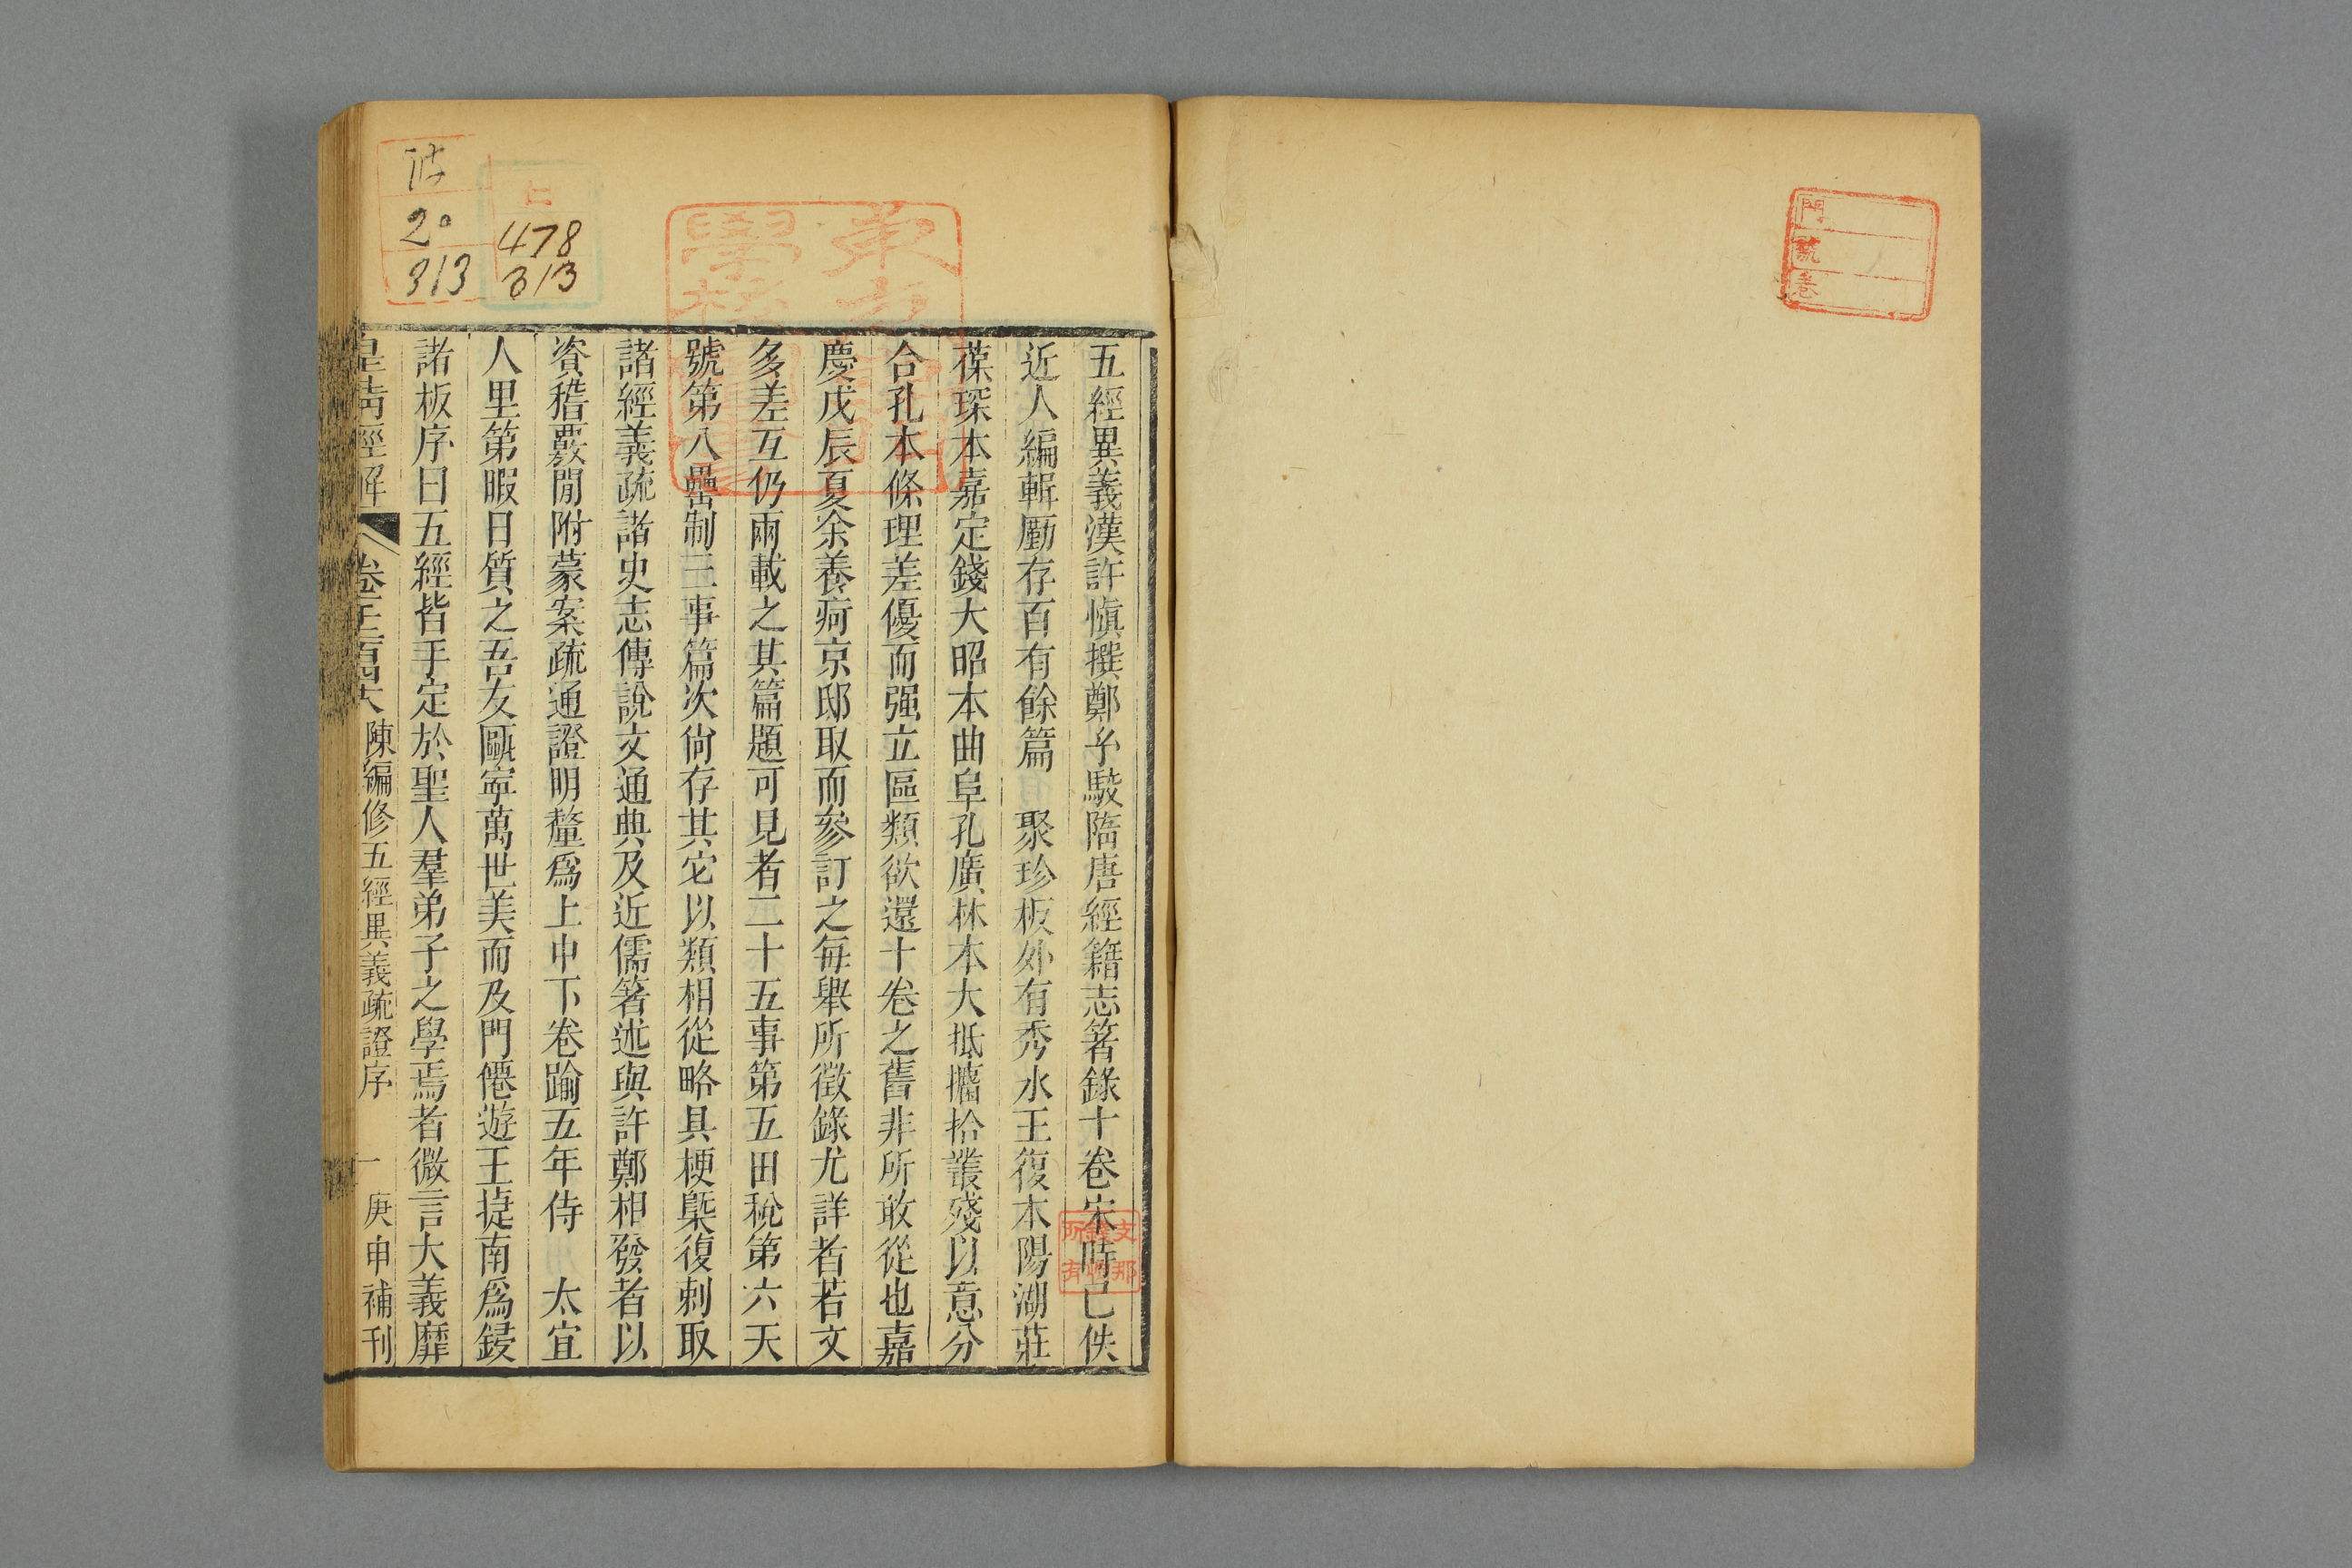 門
號
卷
五經異義漢許愼撰鄭氏駮隋唐經籍志箸錄十卷宋時已佚
近人編輯廑存百有餘篇　聚珍板外有秀水王復本陽湖莊
葆琛本嘉定錢大昭本曲阜孔廣林本大抵攟拾叢殘以意分
合孔本條理差優而强立區類欲還十卷之舊非所敢從也嘉
慶戊辰夏余養疴京邸取而參訂之每舉所徵錄尤詳者若文
多差互仍兩載之其篇題可見者二十五事第五田稅第六天
號第八罍制三事篇次尙存其它以類相從略具梗槩復刺取
諸經義疏諸史志傳說文通典及近儒箸述與許鄭相發者以
資稽覈閒附蒙案疏通證明釐爲上中下卷踰五年侍　太宜
人里第暇日質之吾友甌寜萬世美而及門僊遊王捷南爲鋟
諸板序曰五經皆手定於聖人羣弟子之學焉者微言大義靡
皇淸經解
陳編修五經異義疏證序
一
庚申補刊
20
313
478
313